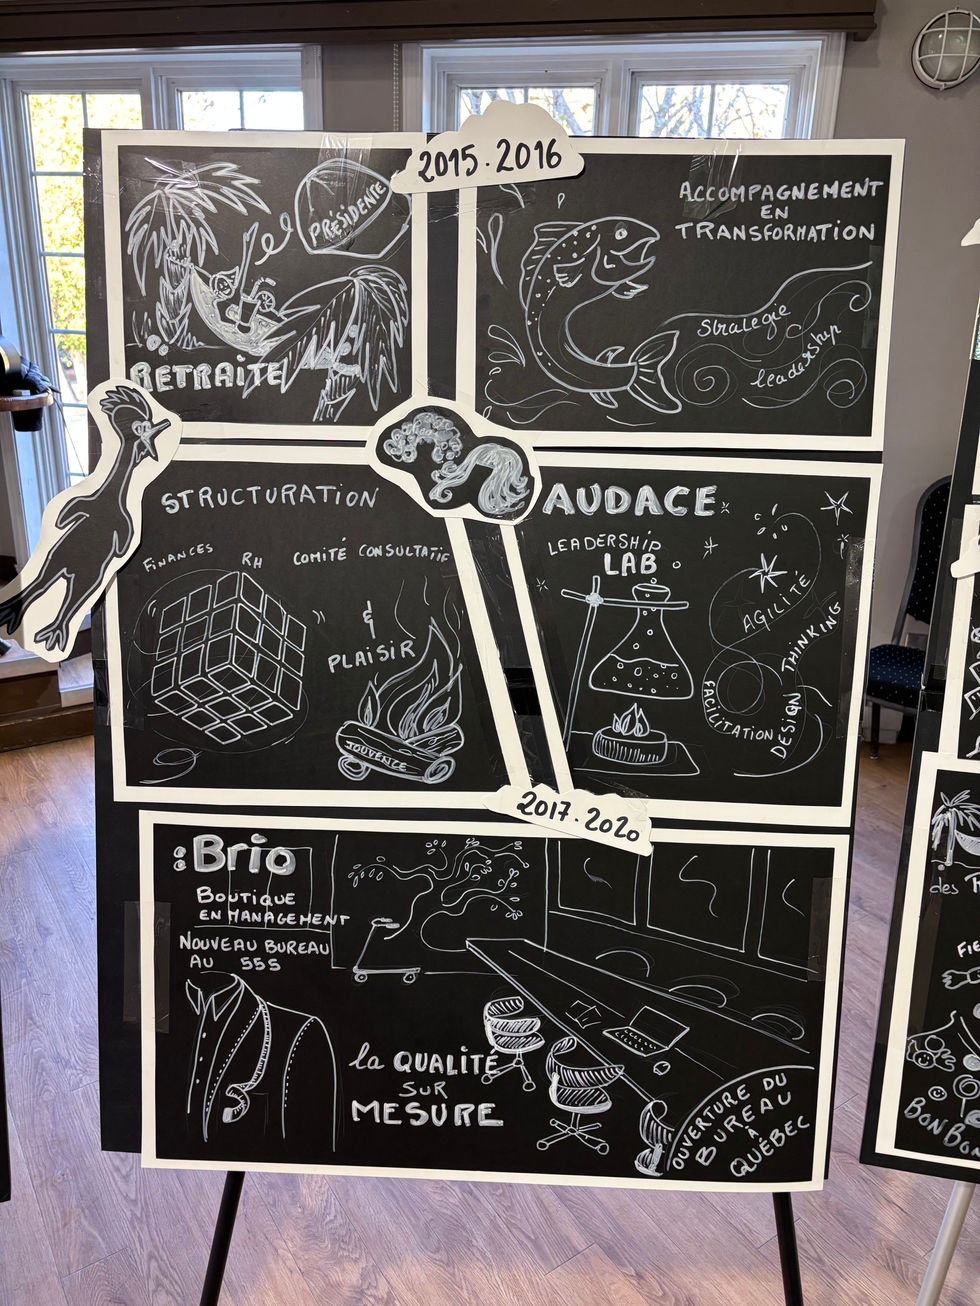 2015.2016
PRÉSIDENTE
RETRAITE
ACCOMPAGNEMENT
EN
TRANSFORMATION
Stratégie
leadership
STRUCTURATION
FINANCES
RH
COMITÉ CONSULTATIF
&
PLAISIR
JOUVENCE
AUDACE
LEADERSHIP
LAB
AGILITÉ
DESIGN THINKING
FACILITATION
2017.2020
:Brio
BOUTIQUE
EN MANAGEMENT
NOUVEAU BUREAU
AU 555
la QUALITÉ
SUR
MESURE
OUVERTURE DU
BUREAU
À
QUÉBEC
des
BONBON